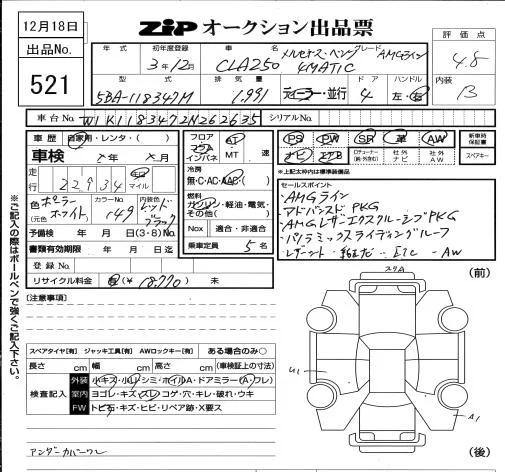 12月18日
ZIP オークション出品票
出品No.
521
年式
初年度登録
3年12月
車名
メルセデス・ベンツ
CLA250 4MATIC
グレード
AMGライン
評価点
4.8
内装
B
型式
5BA-118347M
排気量
1.991
ディーラー・並行
ドア
4
ハンドル
左・右
車台No.
W1K1183472N262635
シリアルNo.
車歴
自家用・レンタ・( )
車検
年 月
走行
22934
マイル
色
(元色)
ポーラーホワイト
カラーNo.
149
内装色
レッドブラック
予備検
年 月 日(3・8)No.
書類有効期限
年 月 日迄
登録No.
リサイクル料金
(¥18,770)
未
フロア
コラム
インパネ
AT
MT
速
冷房
無・C・AC・AAC・( )
燃料
ガソリン・軽油・電気・その他( )
Nox
適合・非適合
乗車定員
5名
PS
PW
SR
革
AW
ナビ
エアB
社外ナビ
社外AW
新車時保証書
スペアキー
※上記太枠内は装備品
セールスポイント
・AMGライン
・アドバンスドPKG
・AMGレザーエクスクルーシブPKG
・パノラミックスライディングルーフ
ETC - AW
※ご記入の際はボールペンで強くご記入下さい。
[注意事項]
スペアタイヤ[有] ジャッキ工具[有] AWロックキー[有] ある場合のみ○
長さ cm 幅 cm 高さ cm (車検証上の寸法)
検査記入
外装
小キズ・小凹・シミ・ホイルA・ドアミラー(A,フレ)
室内
ヨゴレ・キズ・スレ・コゲ・穴・キレ・破れ・ウキ
FW
トビ石・キズ・ヒビ・リペア跡・X要ス
アンダーカバーワレ
スリA
(前)
U1
A1
(後)